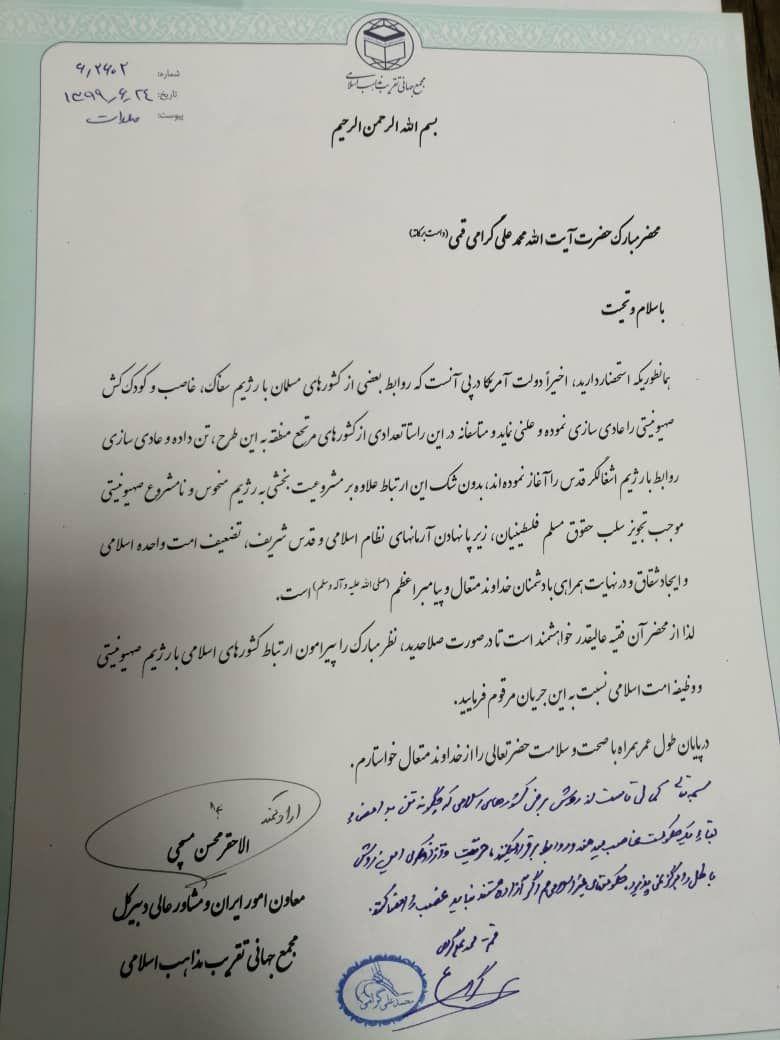 مجمع جهانی تقریب مذاهب اسلامی
شماره: ۶,۲۶۰۲
تاریخ: ۱۳۹۹,۶,۲۴
پیوست:
بسم الله الرحمن الرحیم
محضر مبارک حضرت آیت الله محمد علی گرامی قمی (دامت برکاته)
با سلام و تحیت
همانطوریکه استحضار دارید، اخیراً دولت آمریکا در پی آنست که روابط بعضی از کشورهای مسلمان با رژیم سفاک، غاصب و کودک کش
صهیونیستی را عادی سازی نموده و علنی نماید و متاسفانه در این راستا تعدادی از کشورهای مرتجع منطقه به این طرح، تن داده و عادی سازی
روابط با رژیم اشغالگر قدس را آغاز نموده اند، بدون شک این ارتباط علاوه بر مشروعیت بخشی به رژیم منحوس و نامشروع صهیونیستی
موجب تجویز سلب حقوق مسلم فلسطینیان، زیر پا نهادن آرمانهای نظام اسلامی و قدس شریف، تضعیف امت واحده اسلامی
و ایجاد شقاق و در نهایت همراهی با دشمنان خداوند متعال و پیامبر اعظم (صلی الله علیه و آله وسلم) است.
لذا از محضر آن فقیه عالیقدر خواهشمند است تا در صورت صلاحدید، نظر مبارک را پیرامون ارتباط کشورهای اسلامی با رژیم صهیونیستی
و وظیفه امت اسلامی نسبت به این جریان مرقوم فرمایید.
در پایان طول عمر همراه با صحت و سلامت حضرتعالی را از خداوند متعال خواستارم.
ارادتمند
الاحقر محسن مسچی
معاون امور ایران و مشاور عالی دبیرکل
مجمع جهانی تقریب مذاهب اسلامی
بسمه تعالی کمال تاسف از روش برخی کشورهای اسلامی که چگونه تن به امضاء
حکومت غاصب میدهند و روابط برقرار میکنند حریت و آزاد فکری این روش
باطل را هرگز نمی پذیرد. حکومتهای غیر اسلامی هم اگر آزاده هستند نباید غصب را امضا کنند.
قم محمد علی گرامی
محمد علی گرامی